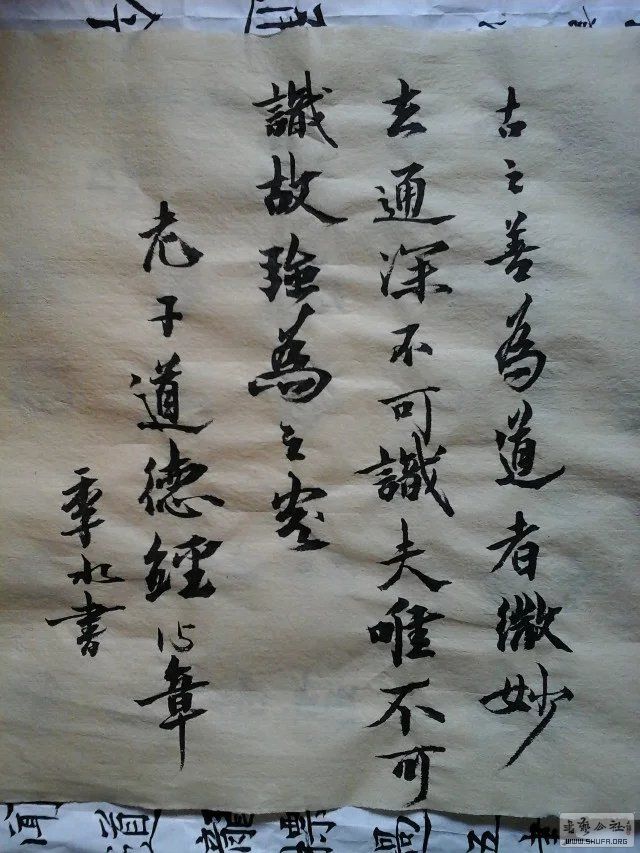 古之善為道者微妙
玄通深不可識夫唯不可
識故強為之容
老子道德經15章
季水書
書藝公社
WWW.SHUFA.ORG